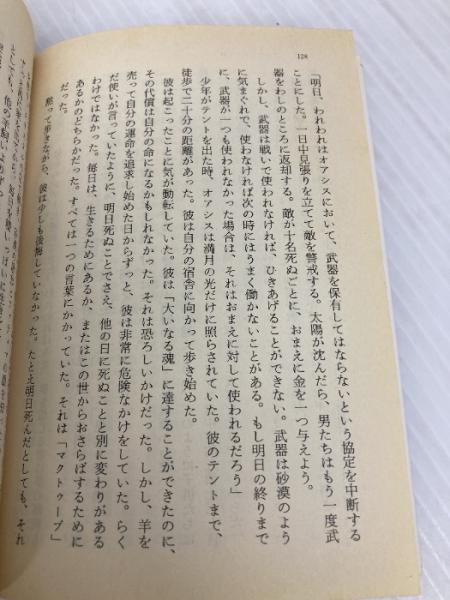 128
「明日、われわれはオアシスにおいて、武器を保有してはならないという協定を中断する
ことにした。一日中見張りを立てて敵を警戒する。太陽が沈んだら、男たちはもう一度武
器をわしのところに返却する。敵が十名死ぬごとに、おまえに金を一つ与えよう。
しかし、武器は戦いで使われなければ、ひきあげることができない。武器は砂漠のよう
に気まぐれで、使わなければ次の時にはうまく働かないことがある。もし明日の終りまで
に、武器が一つも使われなかった場合は、それはおまえに対して使われるだろう」
少年がテントを出た時、オアシスは満月の光だけに照らされていた。彼のテントまで、
徒歩で二十分の距離があった。彼は自分の宿舎に向かって歩き始めた。
彼は起こったことに気が動転していた。彼は「大いなる魂」に達することができたのに、
その代償は自分の命になるかもしれなかった。それは恐ろしいかけだった。しかし、羊を
売って自分の運命を追求し始めた日からずっと、彼は非常に危険なかけをしていた。らく
だ使いが言っていたように、明日死ぬことでさえ、他の日に死ぬことと別に変わりがある
わけではなかった。毎日は、生きるためにあるか、またはこの世からおさらばするために
あるかのどちらかだった。すべては一つの言葉にかかっていた。それは「マクトゥーブ」
だった。
黙って歩きながら、彼は少しも後悔していなかった。たとえ明日死んだとしても、それ